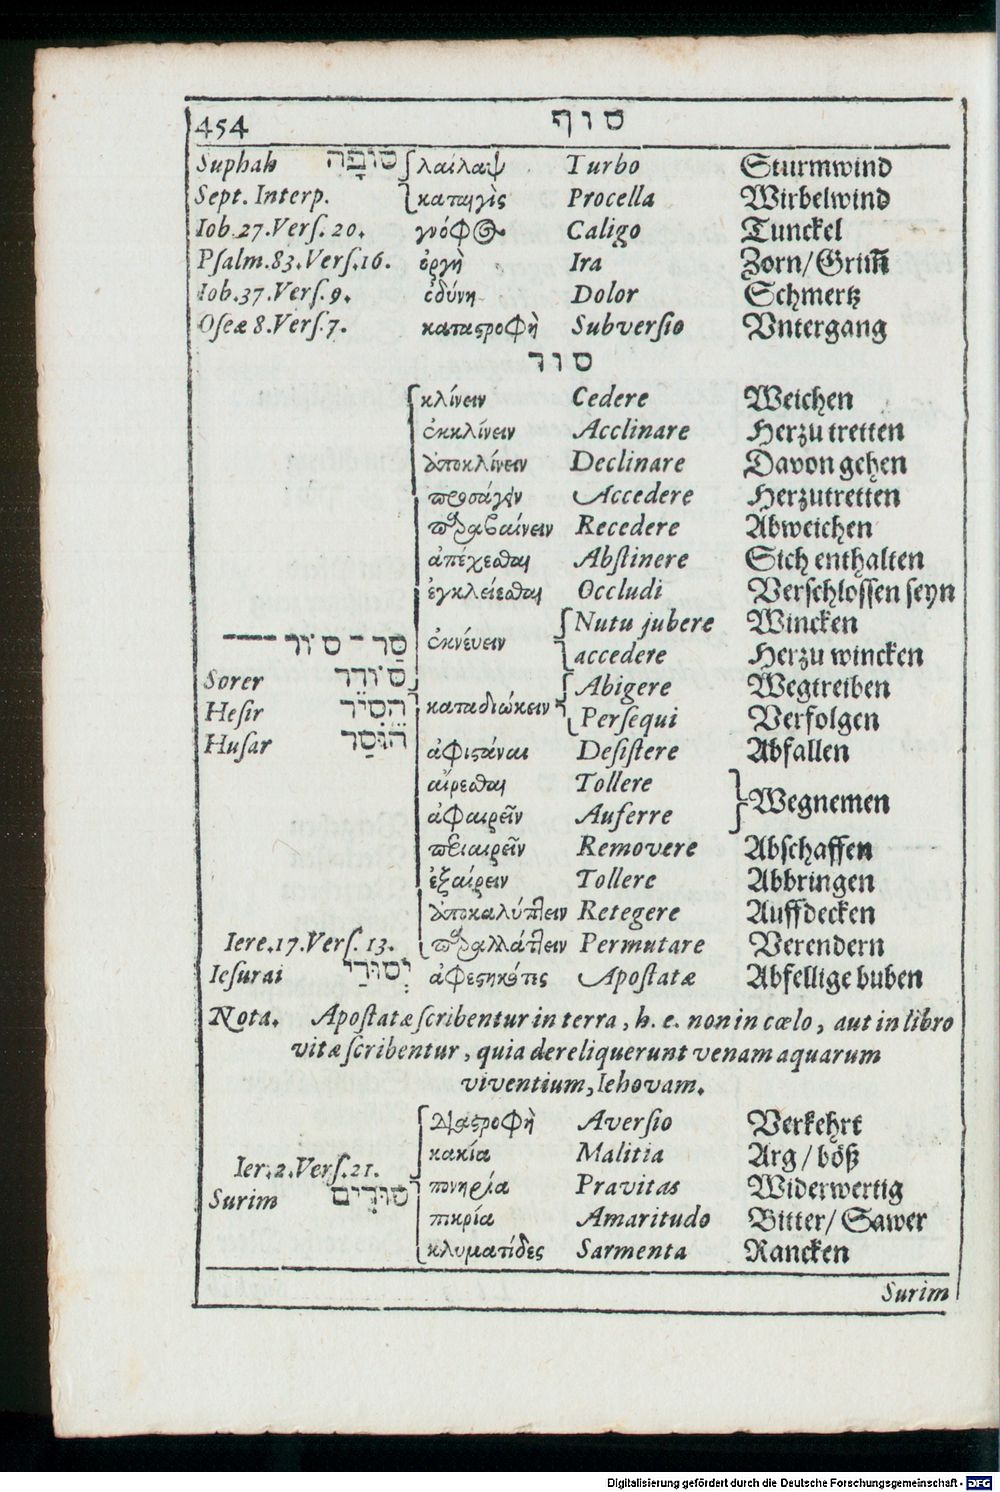 454 סוף
Suphah סוּפָה λαίλαψ Turbo Sturmwind
Sept. Interp. καταιγὶς Procella Wirbelwind
Iob.27.Verſ.20. γνόφος Caligo Tunckel
Pſalm.83.Verſ.16. ὀργὴ Ira Zorn/Grim̃
Iob.37.Verſ.9. ὀδύνη Dolor Schmertz
Oſeæ 8.Verſ.7. καταϛροφὴ Subverſio Vntergang
סור
κλίνειν Cedere Weichen
ἐκκλίνειν Acclinare Herzu tretten
ἀποκλίνειν Declinare Davon gehen
προσάγειν Accedere Herzutretten
παραβαίνειν Recedere Abweichen
ἀπέχεσθαι Abſtinere Sich enthalten
ἐγκλείεσθαι Occludi Verſchloſſen ſeyn
סַר – סוֹר ἐκνέυειν Nutu jubere Wincken
accedere Herzu wincken
Sorer סוֹרֵר Abigere Wegtreiben
Heſir הֵסִיר καταδιώκειν Perſequi Verfolgen
Huſar הוּסַר ἀφιϛάναι Deſiſtere Abfallen
αἴρεσθαι Tollere Wegnemen
ἀφαιρεῖν Auferre
περιαιρεῖν Removere Abſchaffen
ἐξαίρειν Tollere Abbringen
ἀποκαλύπτειν Retegere Auffdecken
Iere.17.Verſ.13. παραλλάττειν Permutare Verendern
Ieſurai יְסוּרַי ἀφεϛηκότες Apoſtatæ Abfellige buben
Nota. Apoſtatæ ſcribentur in terra, h. e. non in cœlo, aut in libro
vitæ ſcribentur, quia dereliquerunt venam aquarum
viventium, Iehovam.
Aversio Verkehrt
κακία Malitia Arg / böß
Ier.2.Verſ.21. πονηρία Pravitas Widerwertig
Surim סוּרִים πικρία Amaritudo Bitter/ Sawer
κλυματίδες Sarmenta Rancken
Surim
Digitalisierung gefördert durch die Deutsche Forschungsgemeinschaft - DFG